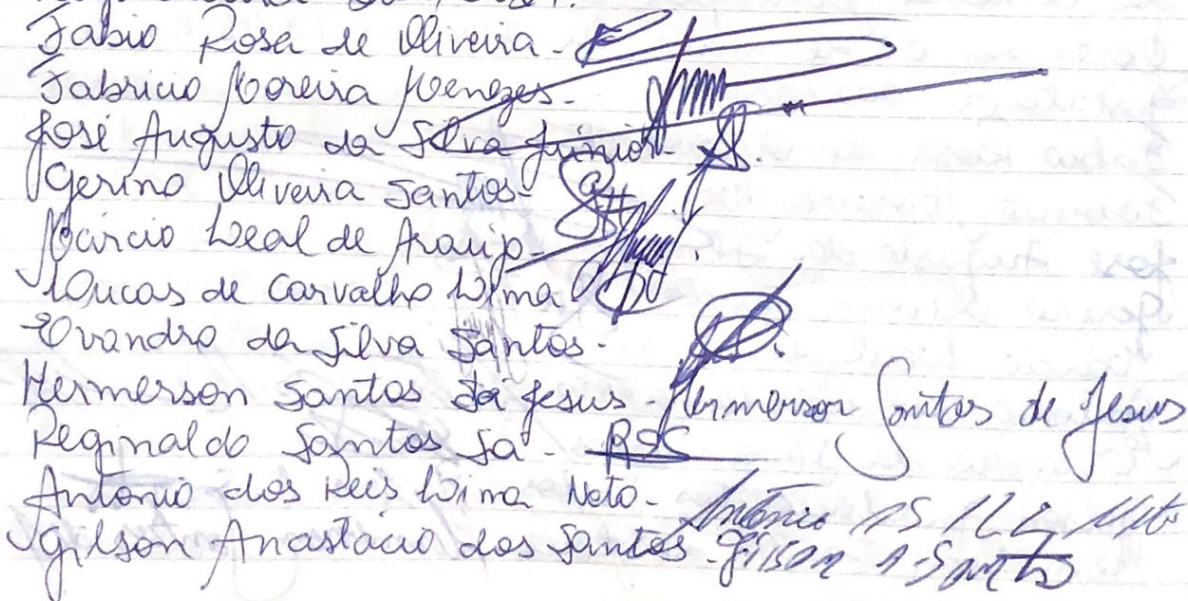 Fabio Rosa de Oliveira-
Fabricio Moreira Menezes-
José Augusto da Silva Júnior-
Gerino Oliveira Santos-
Márcio Leal de Araujo-
Lucas de Carvalho Lima
Evandro da Silva Santos-
Hermerson Santos de Jesus - Hermerson Santos de Jesus
Reginaldo Santos Sa- RSS
Antonio dos Reis Lima Neto- Antônio
Gilson Anastácio dos Santos- Gilson A. Santos